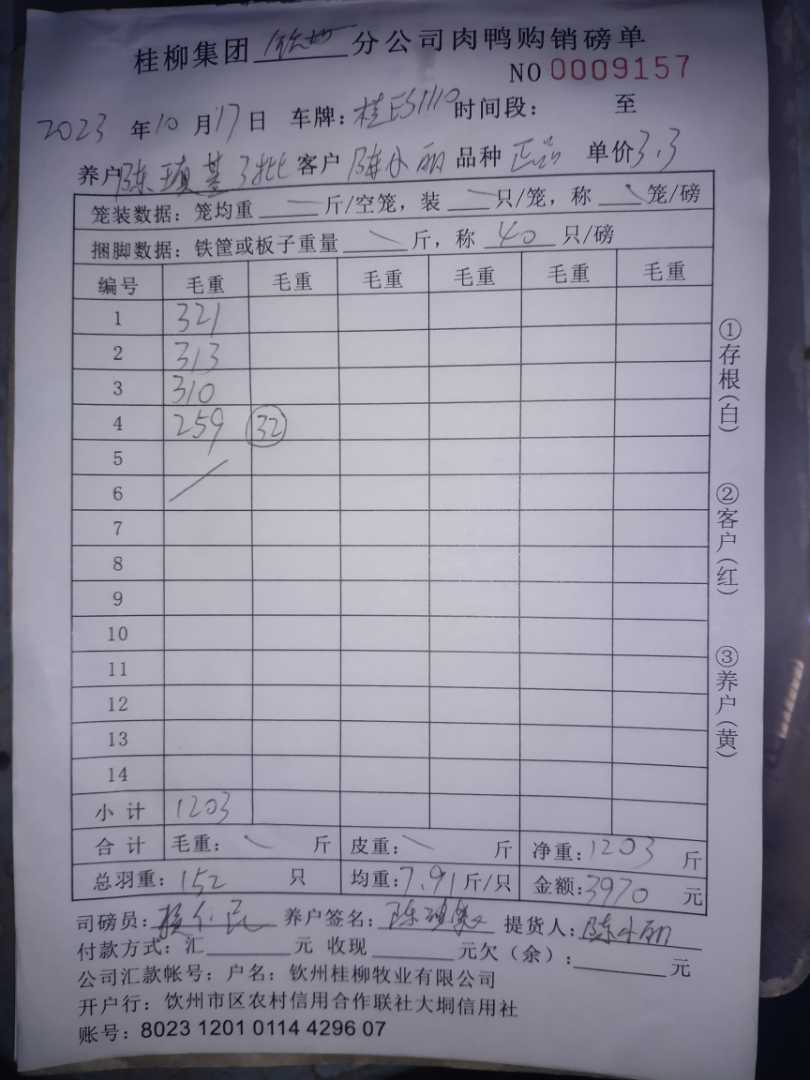 桂柳集团 钦州 分公司肉鸭购销磅单
NO 0009157
2023 年 10 月 17 日 车牌: 桂ES1110 时间段: 至
养户 陈 基 3批 客户 陈小丽 品种 正品 单价 3.3
笼装数据: 笼均重 斤/空笼, 装 只/笼, 称 笼/磅
捆脚数据: 铁筐或板子重量 斤, 称 40 只/磅
编号 毛重 毛重 毛重 毛重 毛重 毛重
1 321
2 313
3 310
4 259 32
5
6
7
8
9
10
11
12
13
14
小计 1203
合计 毛重: 斤 皮重: 斤 净重: 1203 斤
总羽重: 152 只 均重: 7.91 斤/只 金额: 3970 元
司磅员: 养户签名: 陈 提货人: 陈小丽
付款方式: 汇 元 收现 元欠(余): 元
公司汇款帐号: 户名: 钦州桂柳牧业有限公司
开户行: 饮州市区农村信用合作联社大垌信用社
账号: 8023 1201 0114 4296 07
①存根(白)
②客户(红)
③养户(黄)